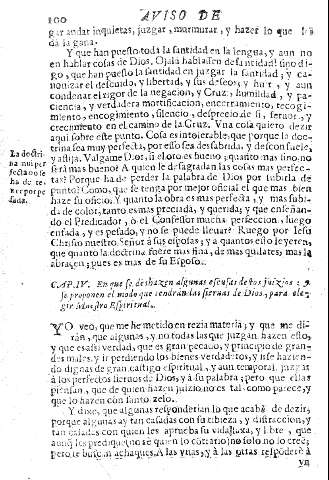 100
AVISO DE
gar andar inquietas, juzgar, murmurar, y hazer lo que les
dà la gana.
Y que han puesto toda la santidad en la lengua, y aun no
en hablar cosas de Dios. Ojalà hablassen de santidad! sino di-
go, que han puesto la santidad en juzgar la santidad, y ca-
nonizar el descuido, y libertad, y sus deseos, y huir, y aun
condenar el rigor de la negacion, y Cruz, humildad, y pa-
ciencia, y verdadera mortificacion, encerramiento, recogi-
miento, encogimiento, silencio, desprecio de si, fervor, y
crecimiento en el camino de la Cruz. Vna cosa quiero dezir
aqui sobre este punto. Cosa es intolerable, que porque la doc-
trina sea muy perfecta, por esso sea desabrida, y desconsuele,
y aflija. Valgame Dios, si el oro es bueno, quanto mas fino, no
serà mas bueno? A quien le desagradan las cosas mas perfec-
tas? Porque ha de perder la palabra de Dios por subirla de
punto? Como, que se tenga por mejor oficial el que mas bien
haze su oficio. Y quanto la obra es mas perfecta, y mas subi-
da de color, tanto es mas preciada, y querida; y que enseñan-
do el Predicador, ò el Confessor mucha perfeccion, luego
enfada, y es pesado, y no se puede llevar? Ruego por Iesu
Christo nuestro Señor à sus esposas, y a quantos esto leyeren,
que quanto la doctrina fuere mas fina, de mas quilates, mas la
abracen, pues es mas de su Esposo.
La doctri-
na mas per-
fecta no se
ha de te-
ner por pe-
sada.
CAP. IV. En que se deshazen algunas escusas de los juizios: y
se proponen el modo que tendràn las siervas de Dios, para ele-
gir Maestro Espiritual.
YO veo, que me he metido en rezia materia; y que me di-
ràn, que algunas, y no todas las que juzgan hazen esto,
y que es assi verdad, que es gran pecado, y principio de gran-
des males, y ir perdiendo los bienes verdaderos, y irse hazien-
do dignas de gran castigo espiritual, y aun temporal, juzgar
à los perfectos siervos de Dios, y à su palabra; pero que ellas
piensan, que de quien hazen juizio, no es tal como parece, y
que lo hazen con santo zelo.
Y dixe, que algunas responderian lo que acabè de dezir,
porque algunas ay tan casadas con su tibieza, y distraccion, y
tan casadas con quien les aprueba su vida laxa, y libre, que
aunq les prediquen, no sè quien lo cõtrario, no solo no lo creẽ,
pero te buscan achaques. A las vnas, y à las otras respõderè à
vn